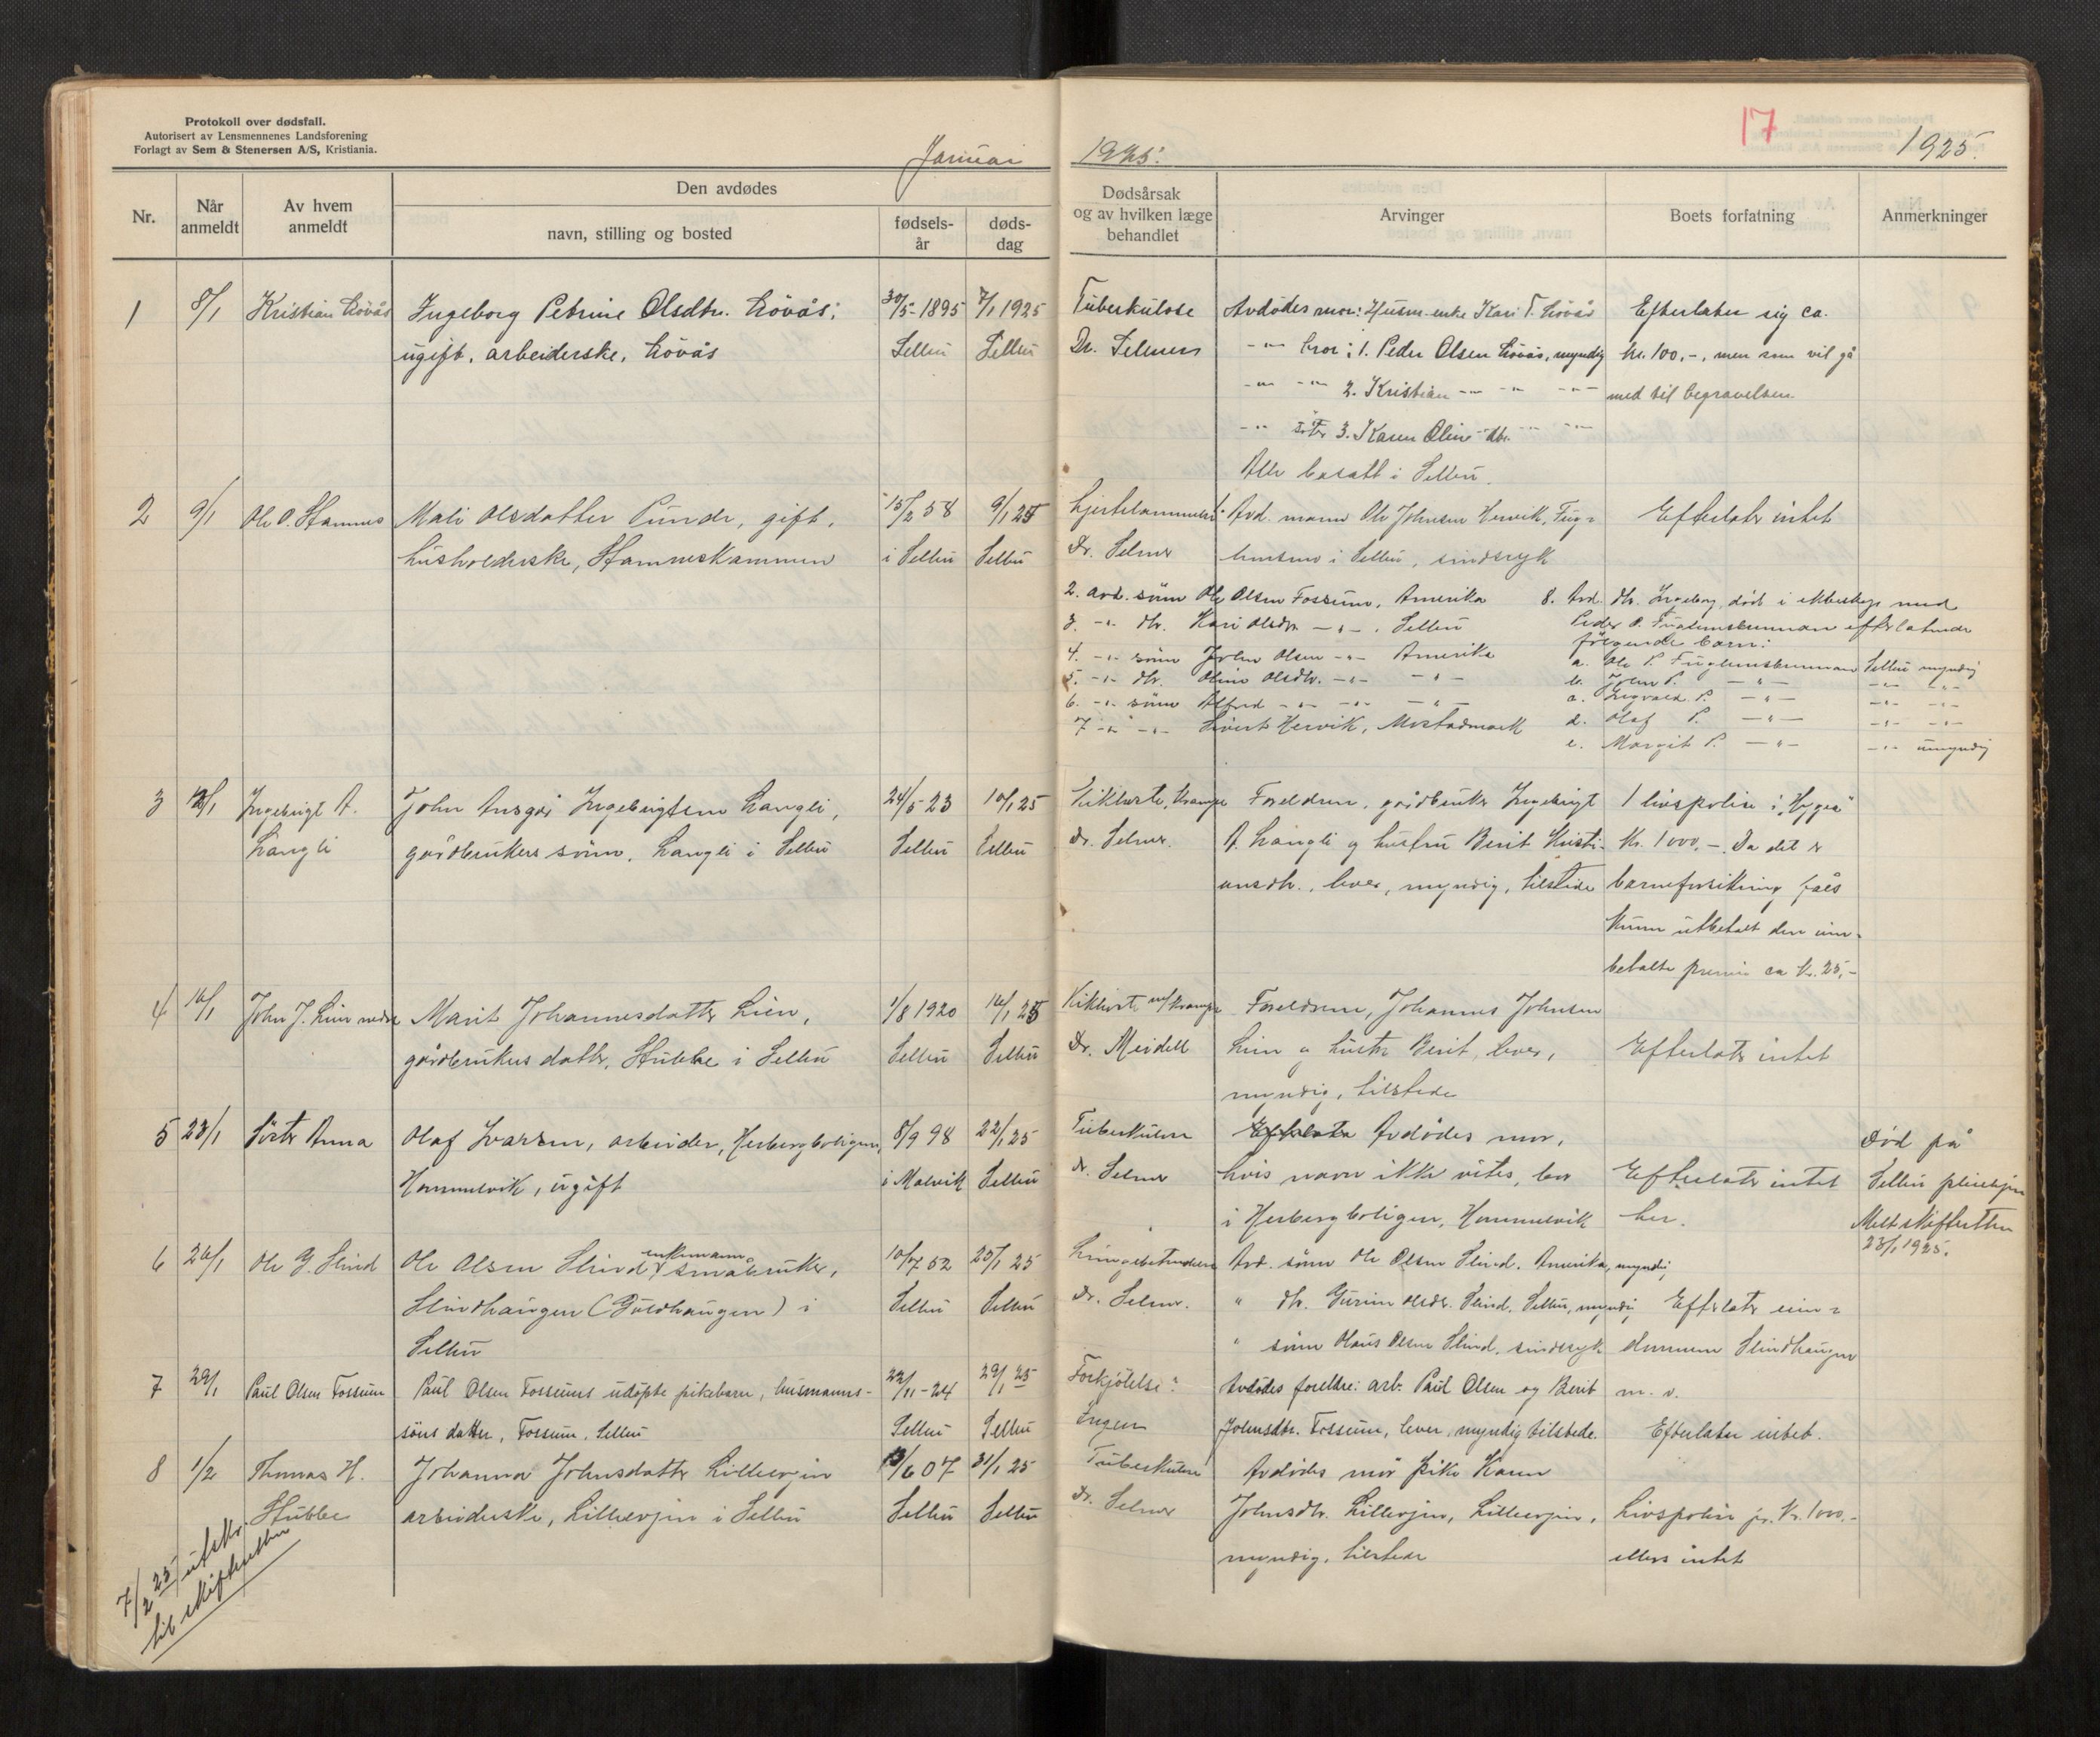 Protokoll over dødsfall.
Autorisert av Lensmennenes Landsforening
Forlagt av Sem & Stenersen A/S, Kristiania.
Januar
1925.
17
1925.
Nr.
Når anmeldt
Av hvem anmeldt
Den avdødes
navn, stilling og bosted
fødsels-år
døds-dag
Dødsårsak og av hvilken læge behandlet
Arvinger
Boets forfatning
Anmerkninger
1 8/1 Kristian Lövås Ingeborg Petrine Olsdtr. Lövås; 30/5-1895 7/1 1925 Tuberkulose Avdødes mor: Husm. enke Kari T. Lövås Efterlater sig ca.
ugift, arbeiderske, Lövås Selbu Selbu Dr. Selmer -"- bror: 1. Peder Olsen Lövås, myndig kr. 100,-, men som vil gå
-"- -"- 2. Kristian -"- -"- -"- med til begravelsen.
-"- 3. Karen Oline -"- dtr. -"- -"-
Alle bosatt i Selbu.
2 9/1 Ole O. Stamnes Mali Olsdatter Punde, gift, 15/2 58 9/1 25 Avd. mann Ole Johnsen Hervik, Efterlater intet
husholderske, Stamneskammen i Selbu Selbu Dr. Selmer i Selbu, sindssyk
2. avd. sönn Ole Olsen Fossum, Amerika
3. -"- dtr. Kari Olsdtr. -"- , Selbu
4. -"- sönn John Olsen -"- Amerika
5. -"- dtr. Oline Olsdtr. -"- -"-
6. -"- sönn Alfred -"- -"- -"-
7 -"- -"- Sivert Hervik, Mostadmark
8. Avd. dtr. Ingeborg, död i ekteskap med
Peder P. Fuglemsbrunnan efterlatende
følgende barn:
a. Ole P. Fuglemsbrunnan Selbu myndig
b. John P. -"- -"- -"-
c. Ingvald P. -"- -"- -"-
d. Olaf P. -"- -"- -"-
e. Margit P. -"- -"- umyndig
3 12/1 Ingebrigt A. John Ansgar Ingebrigtsen Langli, 24/5 23 10/1 25 Kikhoste, krampe Foreldrene, gårdbruker Ingebrigt 1 livspolise i "Hygea"
Langli gårdbrukers sönn, Langli i Selbu Selbu Selbu Dr. Selmer. A. Langli og hustru Berit Kristi- Kr. 1000,-. Da det er
ansdtr., lever, myndig, tilstede barneforsikring fåes
kun utbetalt den inn-
betalte premie ca kr. 25,-
4 16/1 John J. Lien nedre Marit Johannesdatter Lien, 1/8 1920 14/1 25 Kikhoste m/krampe Foreldrene, Johannes Johnsen
gårdbrukers datter, Stubbe i Selbu Selbu Selbu Dr. Meidell Lien og hustru Berit, lever, Efterlater intet
myndig, tilstede
5 23/1 Söster Anna Olaf Ivarsen, arbeider, Herbergboligen, 8/9 98 22/1 25 Tuberkulose Avdødes mor, Död på
Hommelvik, ugift i Malvik Selbu Dr. Selmer hvis navn ikke vites, bor Efterlater intet Selbu pleiehjem
i Herbergboligen, Hommelvik her. Meldt skifteretten
23/1 1925.
6 26/1 Ole G. Slind Ole Olsen Slind enkemann småbruker, 10/7 52 25/1 25 Lungebetendelse Avd. sönn Ole Olsen Slind, Amerika, myndig,
Slindhaugen (Guldhaugen) i Selbu Selbu Dr. Selmer. " dtr. Gurine Olsdtr. Slind, Selbu, myndig, Efterlater ein-
Selbu " sönn Olaus Olsen Slind, sindssyk dommen Slindhaugen
m. v.
7 29/1 Paul Olsen Fossum Paul Olsen Fossums udöpte pikebarn, husmanns- 22/11-24 29/1 25 Forkjölelse? Avdødes foreldre: arb. Paul Olsen og Berit
söns datter, Fossum, Selbu Selbu Selbu Ingen Johnsdtr. Fossum, lever, myndig tilstede. Efterlater intet.
8 1/2 Thomas H. Johanna Johnsdatter Lillevjen 13/6 07 31/1 25 Tuberkulose Avdødes mor pike Karen
Stubbe arbeiderske, Lillevjen i Selbu Selbu Selbu Dr. Selmer Johnsdtr. Lillevjen, Lillevjen, Livspolise pr. Kr. 1000,-
myndig, tilstede ellers intet
7/2 25 utskr.
til skifteretten